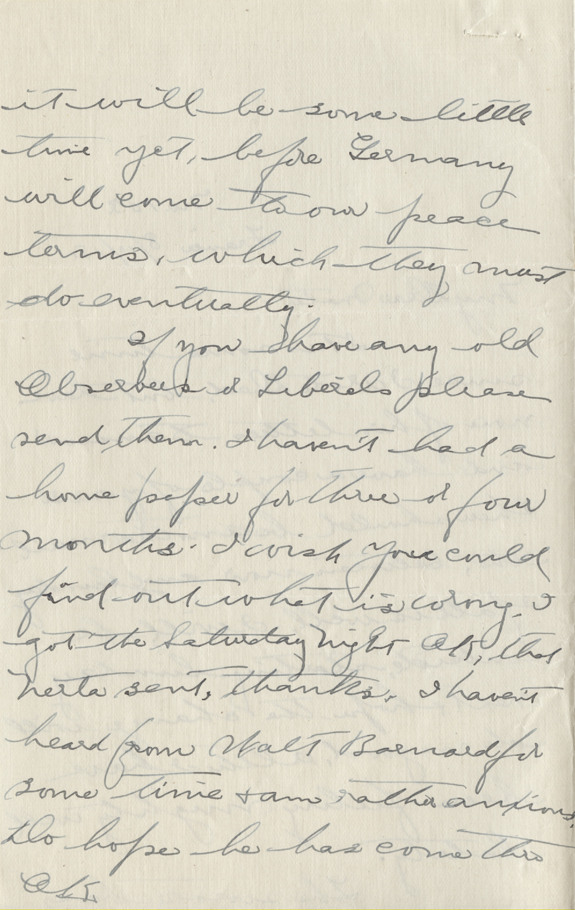 it will be some little
time yet, before Germany
will come to our peace
terms, which they must
do eventually.
If you have any old
Observers & Liberals please
send them. I haven't had a
home paper for three or four
months. I wish you could
find out what is wrong. I
got the Saturday Night OK, that
Nerta sent, thanks. I haven't
heard from Walt Barnard for
some time & am rather anxious,
Do hope he has come thro
OK.